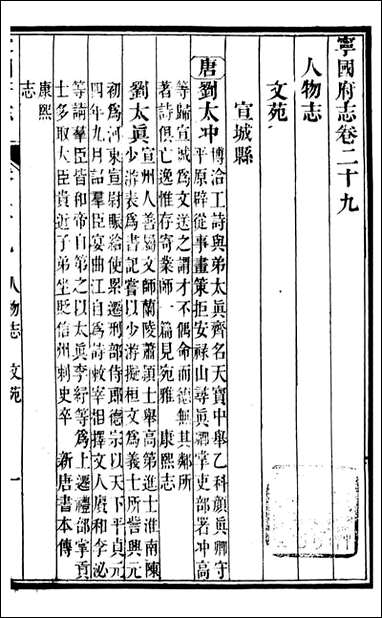 寧國府志卷二十九
人物志
文苑
宣城縣
唐劉太冲博洽工詩與弟太眞齊名天寶中舉乙科顔眞卿守
平原辟從事畫策拒安禄山尋眞卿掌吏部署冲高
等歸宣城爲文送之謂才不偶命而德無其鄰所
著詩俱亡逸惟存寄業師一篇見宛雅 康熙志
劉太眞宣州人善屬文師蘭陵蕭頴士舉高第進士淮南陳
少游表爲書記嘗以少游擬桓文爲義士所訾興元
初爲河東宣尉賑給使累遷刑部侍郎德宗以天下平貞元
四年九月詔羣臣宴曲江自爲詩敕宰相擇文人賡和李泌
等請羣臣皆和帝自第之以太眞李紓等爲上遷禮部掌貢
士多取大臣貴近子弟坐貶信州刺史卒 新唐書本傳
康熙
志
人物志 文苑 一